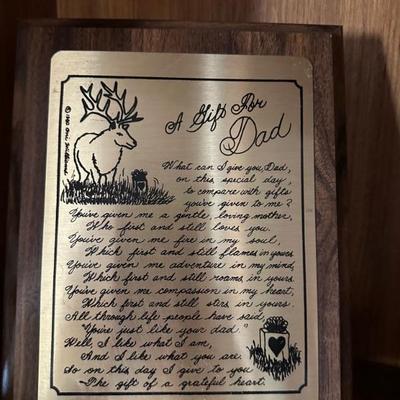 A Gift For
Dad
What can I give you, Dad,
on this special day,
to compare with gifts
you've given to me?
You've given me a gentle, loving mother,
Who first and still loves you.
You've given me fire in my soul,
Which first and still flames in yours.
You've given me adventure in my mind,
Which first and still roams in yours.
You've given me compassion in my heart,
Which first and still stirs in yours.
All through life people have said,
"You're just like your dad."
Well, I like what I am,
And I like what you are.
So on this day I give to you
The gift of a grateful heart.